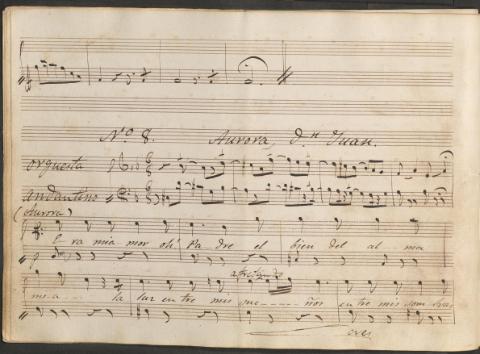 Nº 8. Aurora, Dn Juan.
orquesta
andantino
(Aurora)
E ra mia mor oh! Pa dre el bien del al ma
mi a la luz en tre mis en tre mis som bras